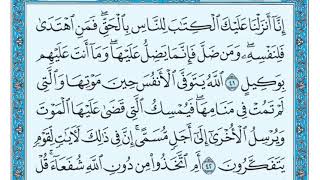 إِنَّا أَنزَلْنَا عَلَيْكَ الْكِتَٰبَ لِلنَّاسِ بِالْحَقِّ ۖ فَمَنِ اهْتَدَىٰ
فَلِنَفْسِهِ ۖ وَمَن ضَلَّ فَإِنَّمَا يَضِلُّ عَلَيْهَا ۖ وَمَا أَنتَ عَلَيْهِم
بِوَكِيلٍ ٤١ اللَّهُ يَتَوَفَّى الْأَنفُسَ حِينَ مَوْتِهَا وَالَّتِي
لَمْ تَمُتْ فِي مَنَامِهَا ۖ فَيُمْسِكُ الَّتِي قَضَىٰ عَلَيْهَا الْمَوْتَ
وَيُرْسِلُ الْأُخْرَىٰ إِلَىٰ أَجَلٍ مُّسَمًّى ۚ إِنَّ فِي ذَٰلِكَ لَآيَٰتٍ لِّقَوْمٍ
يَتَفَكَّرُونَ ٤٢ أَمِ اتَّخَذُوا مِن دُونِ اللَّهِ شُفَعَاءَ ۚ قُلْ